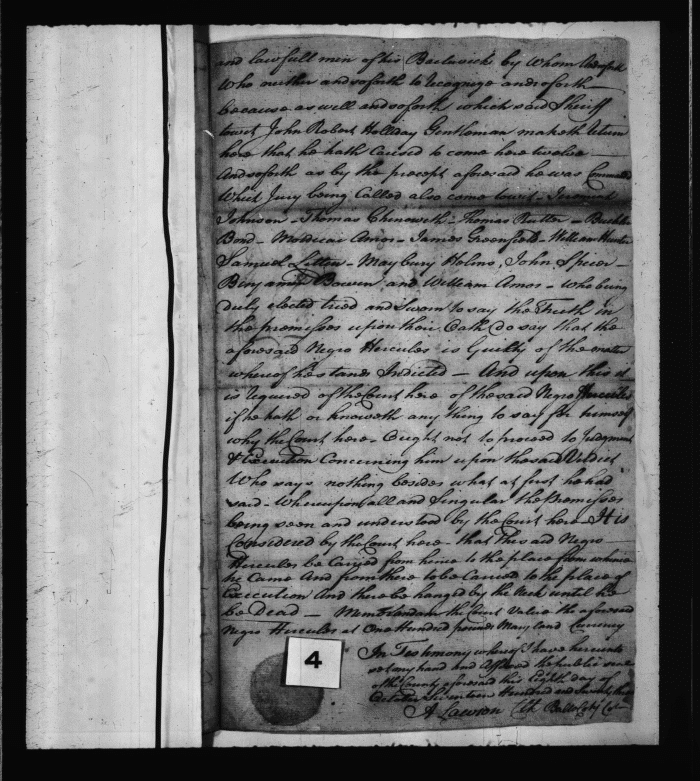 and lawfull men of his Bailiwick by Whom
Who neither and soforth to Recognize and soforth
because as well and soforth which said Sheriff
towit John Robert Holliday Gentleman maketh return
here that he hath Caused to come here twelve
And soforth as by the precept aforesaid he was Commanded
Which Jury being Called also came towit - Jeremiah
Johnson - Thomas Chinowith - Thomas Rutter -
Bond - Mordicai Amos - James Greenfield - William Hunter
Samuel Litten - Maybury Helms, John Spicer -
Benjamin Bowen and William Amos - Who being
duly elected tried and Sworn to say the Truth in
the premisses upon their Oath do say that the
aforesaid Negro Hercules is Guilty of the matter
whereof he stands Indicted - And upon this it
is required of the Court here of the said Negro Hercules
if he hath or knoweth any thing to say for himself
why the Court here - Ought not to proceed to Judgment
& Execution Concerning him upon the said Verdict
Who says nothing besides what at first he had
said. Whereupon all and Singular the Premisses
being seen and understood by the Court here - It is
Considered by the Court here - that the said Negro
Hercules be Carried from hence to the place from whence
he Came And from there to be Carried to the place of
Execution And there be hanged by the Neck until he
be Dead - Memorandum the Court Value the aforesaid
Negro Hercules at One Hundred pounds Maryland Currency
In Testimony whereof I have hereunto
set my hand and Affixed the public seal
of the County aforesaid this Eighth day of
October Seventeen Hundred and Seventy
A Lawson Clk Balto Coty Co
4